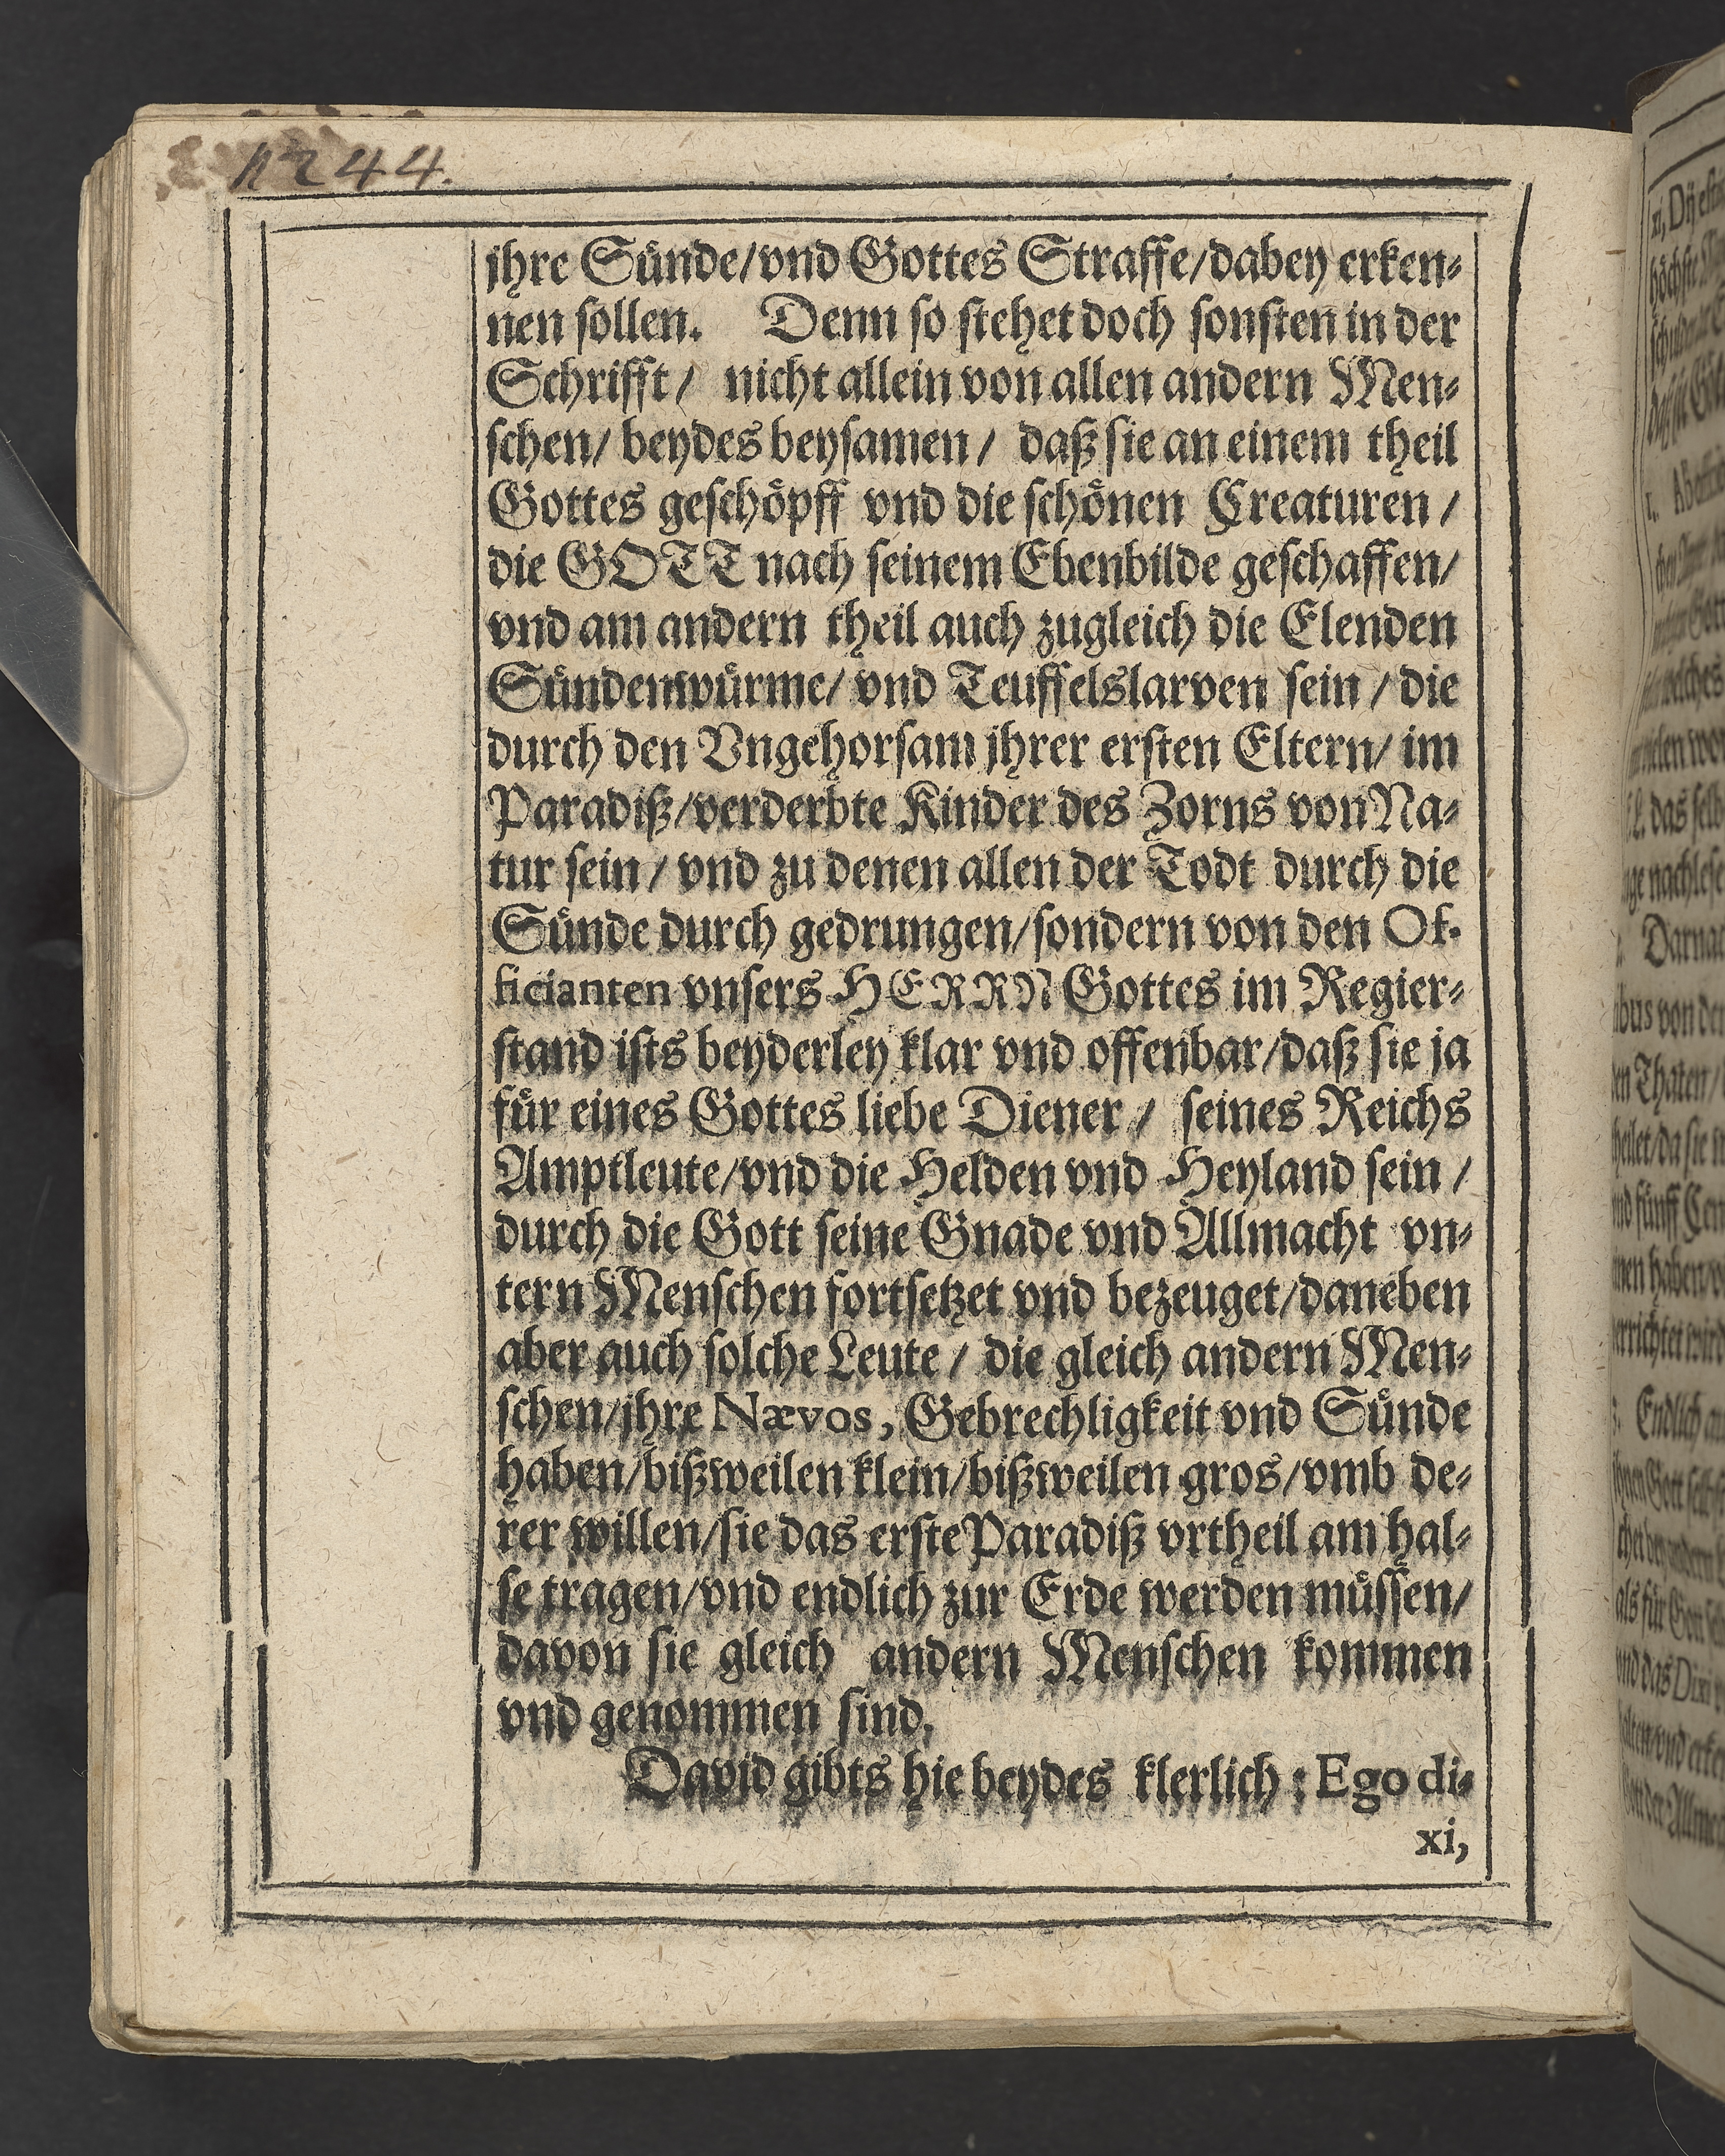 1244.
jhre Sünde/vnd Gottes Straffe/dabey erken-
nen sollen. Denn so stehet doch sonsten in der
Schrifft/ nicht allein von allen andern Men-
schen/ beydes beysamen/ daß sie an einem theil
Gottes geschöpff vnd die schönen Creaturen/
die GOTT nach seinem Ebenbilde geschaffen/
vnd am andern theil auch zugleich die Elenden
Sündenwürme/ vnd Teuffelslarven sein/ die
durch den Vngehorsam jhrer ersten Eltern/ im
Paradiß/verderbte Kinder des Zorns von Na-
tur sein/ vnd zu denen allen der Todt durch die
Sünde durch gedrungen/sondern von den Of-
ficianten vnsers HERRN Gottes im Regier-
stand ists beyderley klar vnd offenbar/daß sie ja
für eines Gottes liebe Diener/ seines Reichs
Amptleute/vnd die Helden vnd Heyland sein/
durch die Gott seine Gnade vnd Allmacht vn-
tern Menschen fortsetzet vnd bezeuget/daneben
aber auch solche Leute/ die gleich andern Men-
schen/jhre Nævos, Gebrechligkeit vnd Sünde
haben/bißweilen klein/bißweilen gros/vmb de-
rer willen/sie das erste Paradiß vrtheil am hal-
se tragen/vnd endlich zur Erde werden müssen/
davon sie gleich andern Menschen kommen
vnd genommen sind.
David gibts hie beydes klerlich: Ego di-
xi,